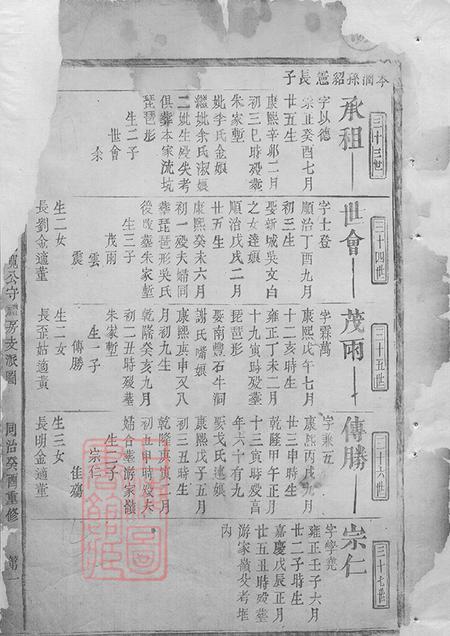 岑濶孫紹憲長子
三十三世
承祖
字以德
崇正癸酉七月
廿五生
康熙辛卯二月
初三巳時殁塟
朱家塹
妣李氏金娘
繼妣余氏淑娘
二妣生殁失考
俱葬本家流坑
琵琶形
生二子
世會
余
三十四世
世會
字士登
順治丁酉九月
初三生
娶新城吳文白
之女達娘
順治戊戌二月
廿五生
康熙癸未六月
初一殁夫婦同
塟琵琶形吳氏
後改塟朱家塹
生三子
茂雨
雲
震
生二女
長劉金適董
三十五世
茂雨
字霖萬
康熙戊午七月
十二亥時生
雍正丁未二月
十九寅時殁塟
琵琶形
娶南豐石牛洞
謝氏嘴娘
康熙庚申又八
月初九生
乾隆癸亥九月
初二丑時殁塟
朱家塹
生一子
傳勝
生二女
長歪姑適黃
三十六世
傳勝
字兼五
康熙丙戌九月
廿三申時生
乾隆甲午正月
十三寅時殁髙
年六十有九
娶戈氏連娘
康熙戊子五月
初三丑時生
乾隆庚寅月
初五申時殁夫
婦合塟游家嶺
生二子
宗仁
佳
生三女
長明金適董
三十七世
宗仁
字學堯
雍正壬子六月
廿二子時生
嘉慶戊辰正月
廿五丑時殁塟
游家嶺父考墔
內
公守房支派圖
同治癸酉重修
第一
圖